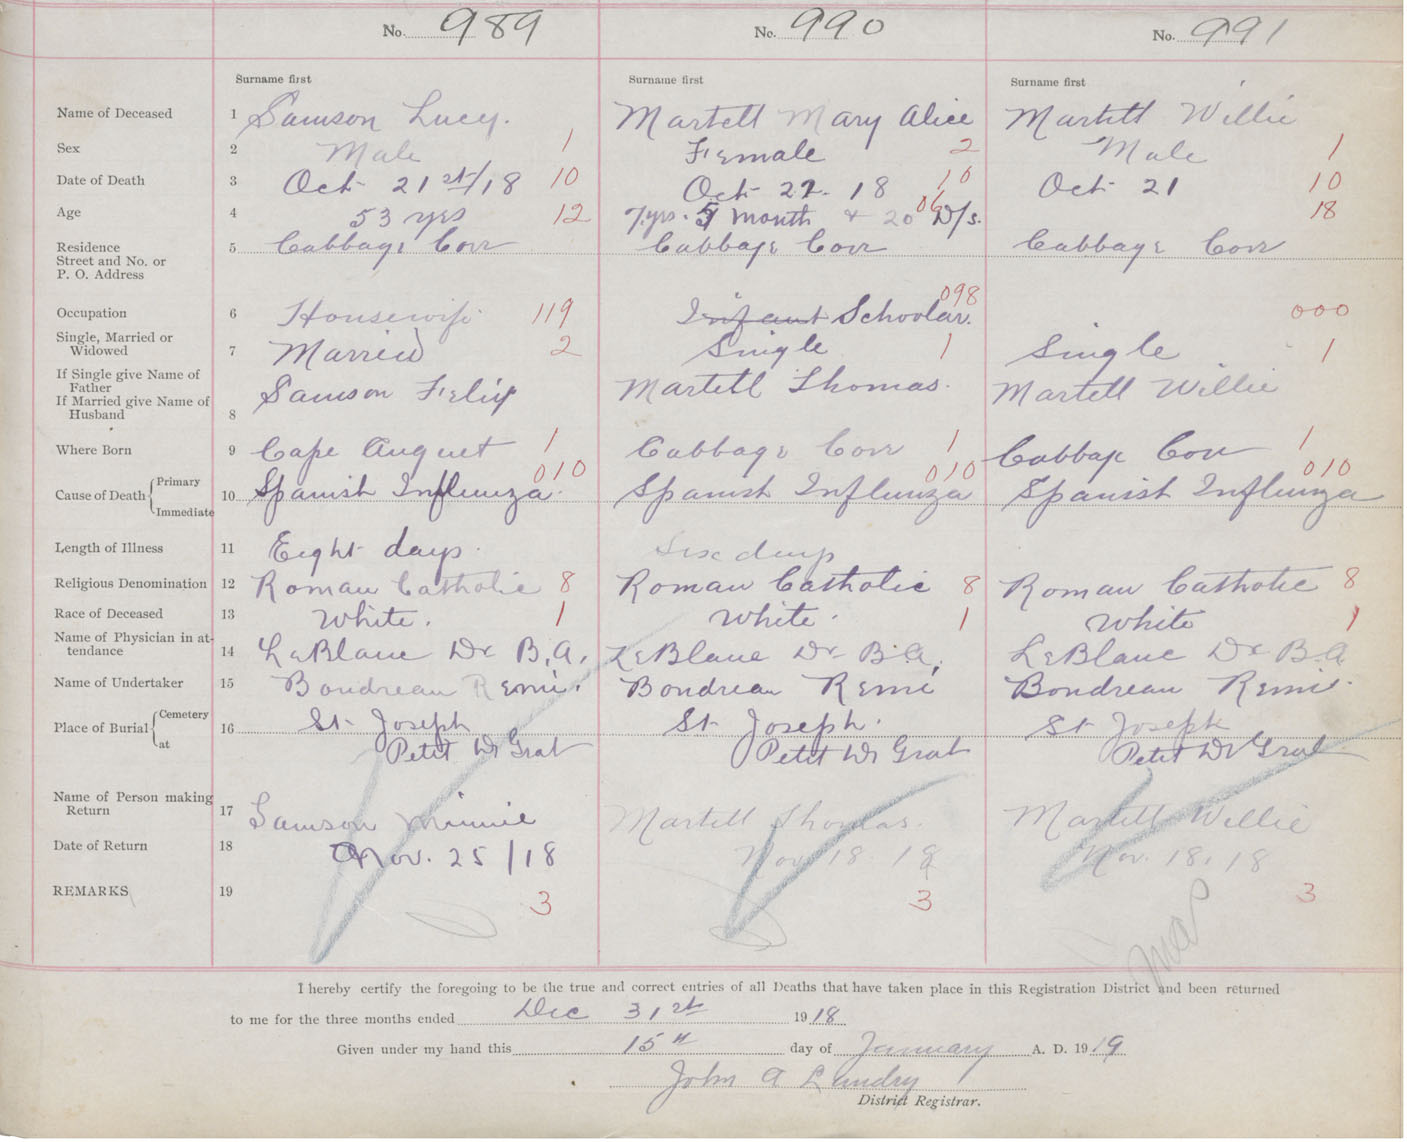 No. 989 No. 990 No. 991
Surname first Surname first Surname first
Name of Deceased 1 Samson Lucy. Martell Mary Alice Martell Willie
Sex 2 Male 1 Female 2 Male 1
Date of Death 3 Oct 21st/18 10 Oct 22 18 10 Oct 21 10
Age 4 53 yrs 12 7 yrs. 5 Month & 20 D/s. 06 18
Residence
Street and No. or 5 Cabbage Cove Cabbage Cove Cabbage Cove
P. O. Address
Occupation 6 Housewife 119 Infant Schoolar. 098 000
Single, Married or
Widowed 7 Married 2 Single 1 Single 1
If Single give Name of
Father
If Married give Name of
Husband 8 Samson Felix Martell Thomas. Martell Willie
Where Born 9 Cape Auguet 1 Cabbage Cove 1 Cabbage Cove 1
Cause of Death Primary 010 010 010
10 Spanish Influenza. Spanish Influenza Spanish Influenza
Immediate
Length of Illness 11 Eight days. Six days
Religious Denomination 12 Roman Catholic 8 Roman Catholic 8 Roman Catholic 8
Race of Deceased 13 White. 1 White. 1 White 1
Name of Physician in at-
tendance 14 LeBlanc Dr B.A. LeBlanc Dr B.A. LeBlanc Dr B.A
Name of Undertaker 15 Boudreau Remi. Boudreau Remi Boudreau Remi.
Place of Burial Cemetery 16 St Joseph St Joseph. St Joseph
at Petit De Grat Petit De Grat Petit De Grat
Name of Person making
Return 17 Samson Minnie Martell Thomas. Martell Willie
Date of Return 18 Nov. 25/18 Nov 18 18 Nov. 18, 18
REMARKS 19 3 3 3
I hereby certify the foregoing to be the true and correct entries of all Deaths that have taken place in this Registration District and been returned
to me for the three months ended Dec 31st 1918
Given under my hand this 15th day of January A. D. 1919
John A Landry
District Registrar.